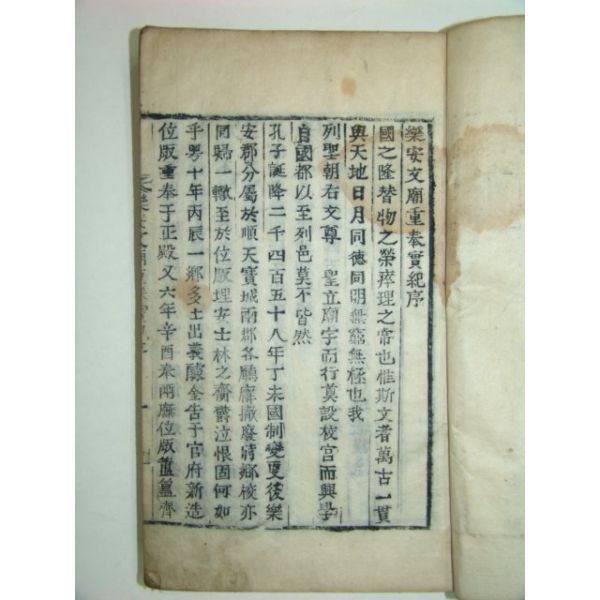 樂安文廟重奉實紀序
國之隆替物之榮瘁理之常也惟斯文者萬古一貫
與天地日月同德同明無窮無極也我
列聖朝右文尊 聖立廟宇而行奠設校宮而興學
自國都以至列邑莫不皆然
孔子誕降二千四百五十八年丁未國制變更後樂
安郡分屬於順天寶城兩郡各廳廨撤廢時鄉校亦
同歸一轍至於位版埋安士林之齋鬱泣恨固何如
乎粤十年丙辰一鄉多士出義醵金告于官府新造
位版重奉于正殿又六年辛酉春兩廡位版簠簋齊